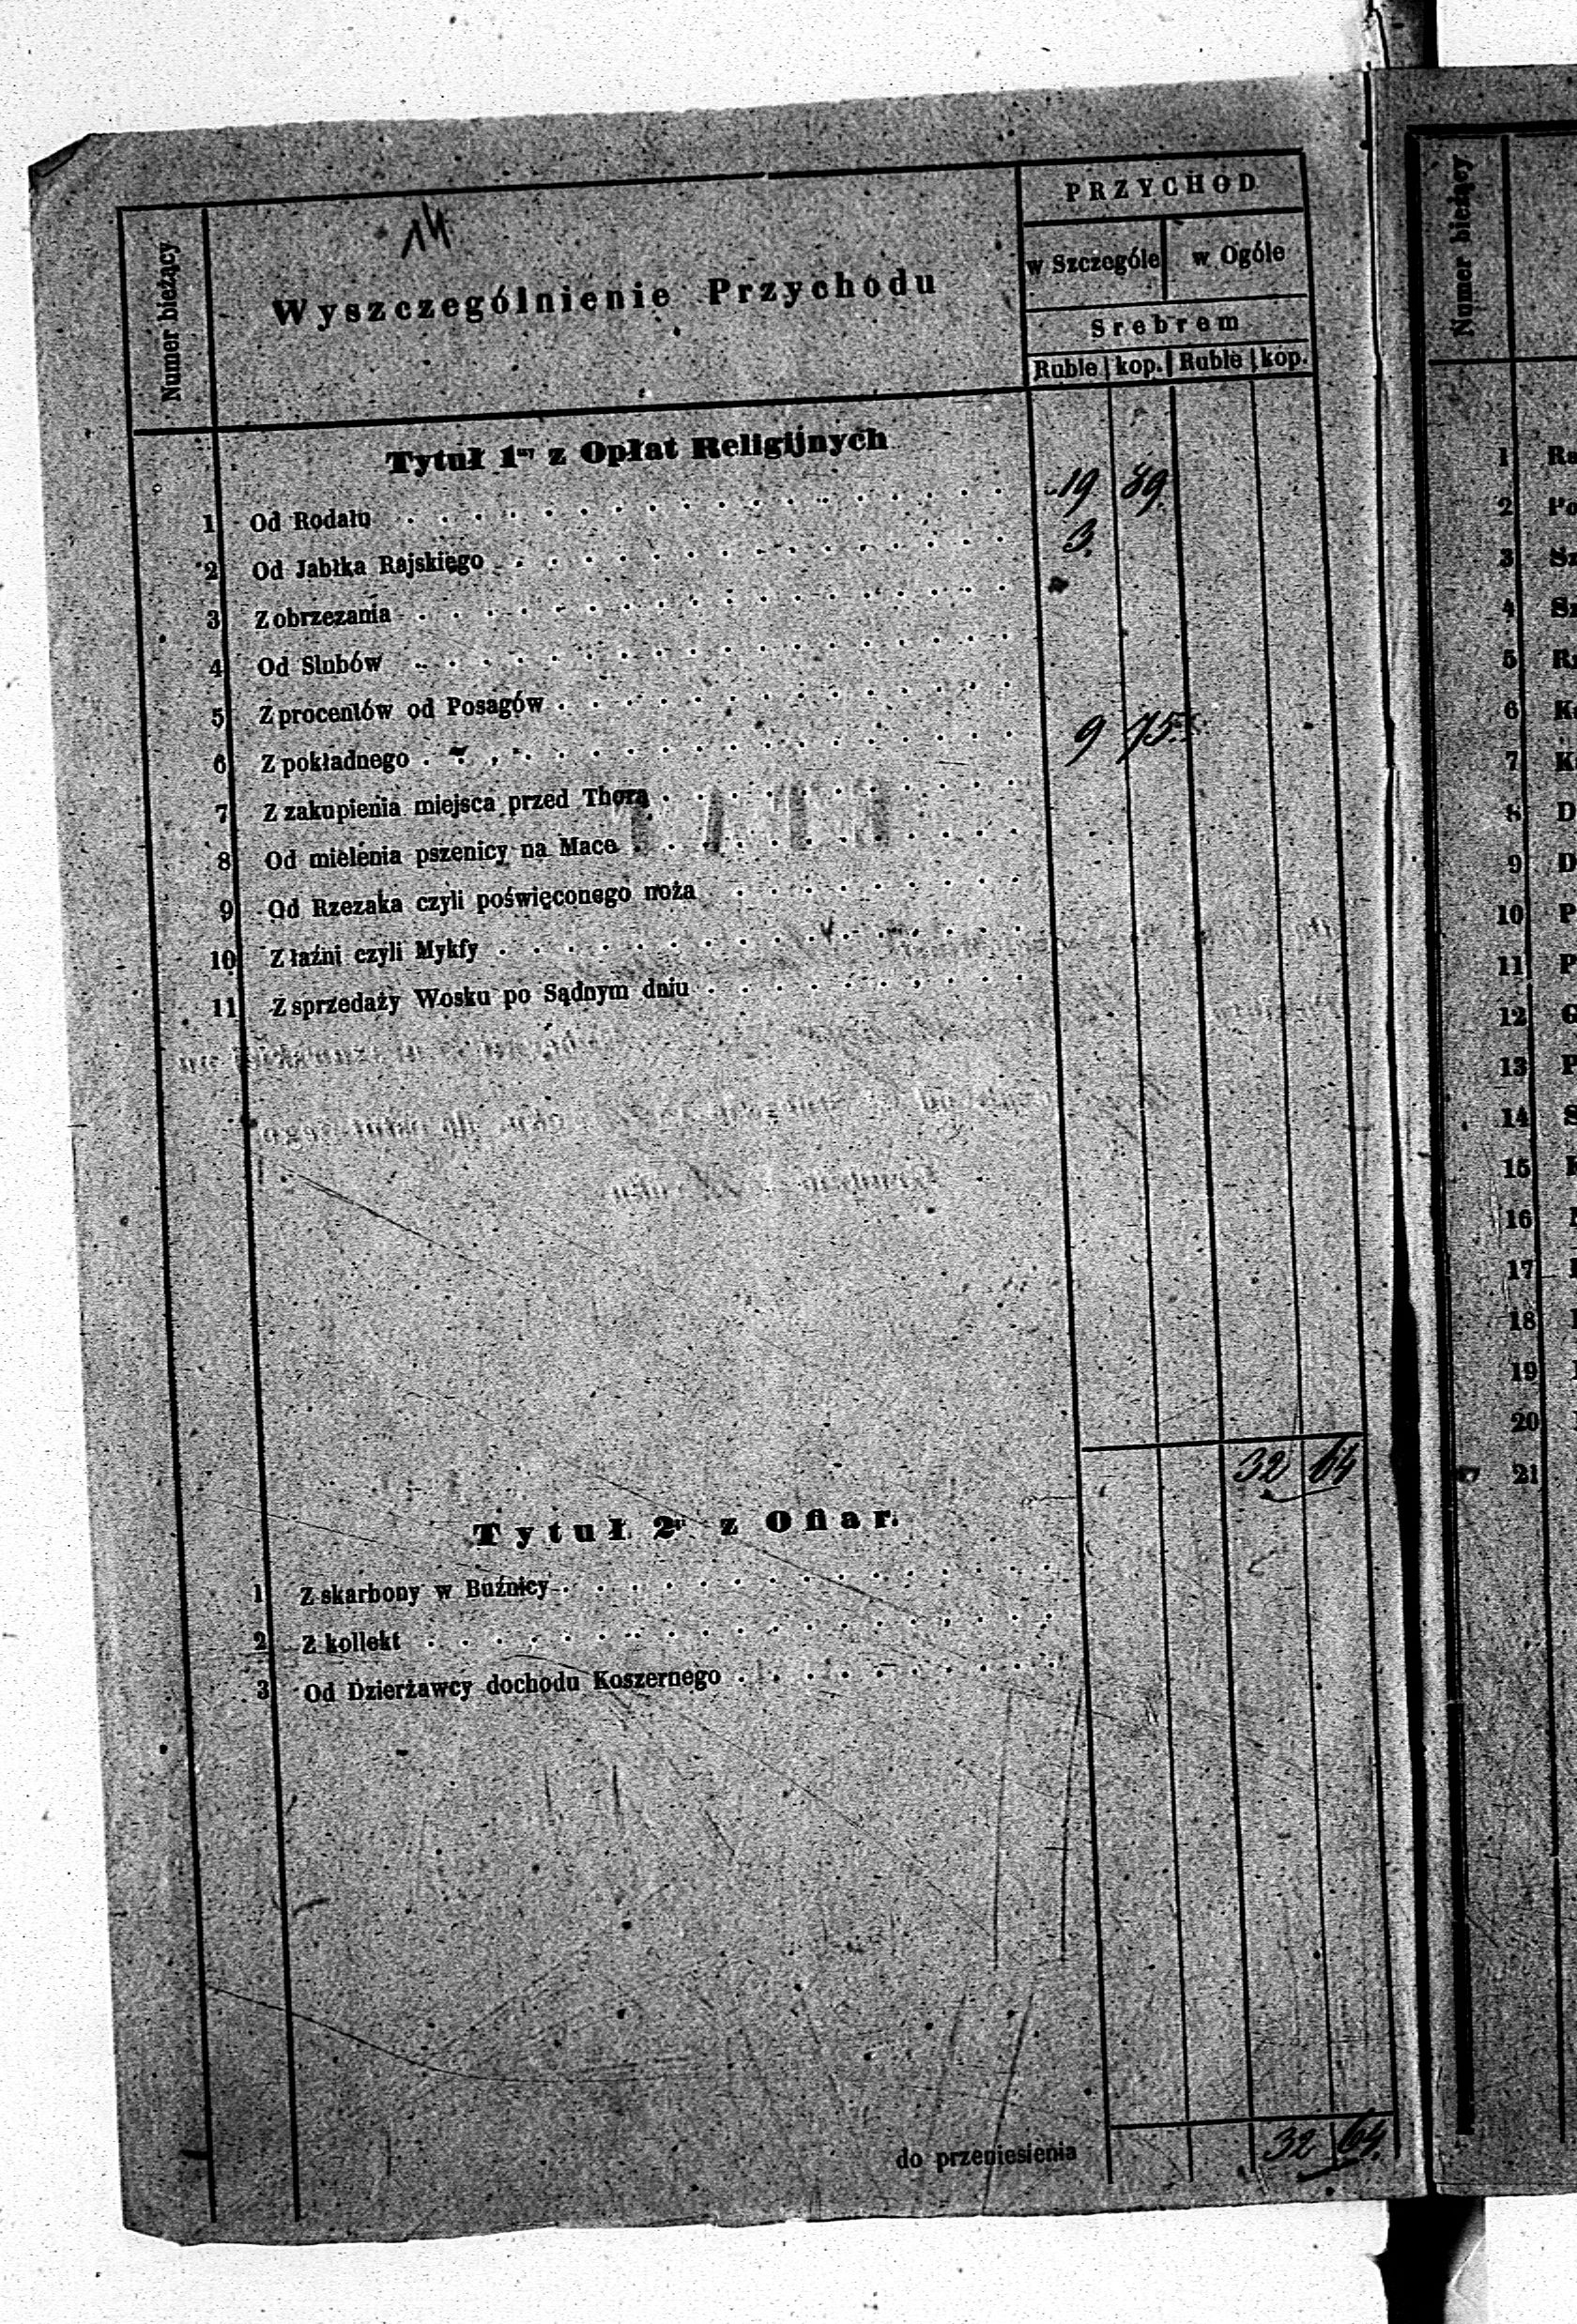 14
Numer bieżący
Wyszczególnienie Przychodu
PRZYCHOD
w Szczególe w Ogóle
Srebrem
Ruble kop. Ruble kop.
Tytuł 1szy z Opłat Religijnych
1 Od Rodału 19 89
2 Od Jabłka Rajskiego 3.
3 Z obrzezania
4 Od Slubów
5 Z procentów od Posagów
6 Z pokładnego 9 75
7 Z zakupienia miejsca przed Thorą
8 Od mielenia pszenicy na Mace
9 Od Rzezaka czyli poświęconego noża
10 Z łaźni czyli Mykfy
11 Z sprzedaży Wosku po Sądnym dniu
32 64
Tytuł 2gi z Ofiar.
1 Z skarbony w Buźnicy
2 Z kollekt
3 Od Dzierżawcy dochodu Koszernego
do przeniesienia 32 64.
Numer bieżący
1
2
3
4
5
6
7
8
9
10
11
12
13
14
15
16
17
18
19
20
21